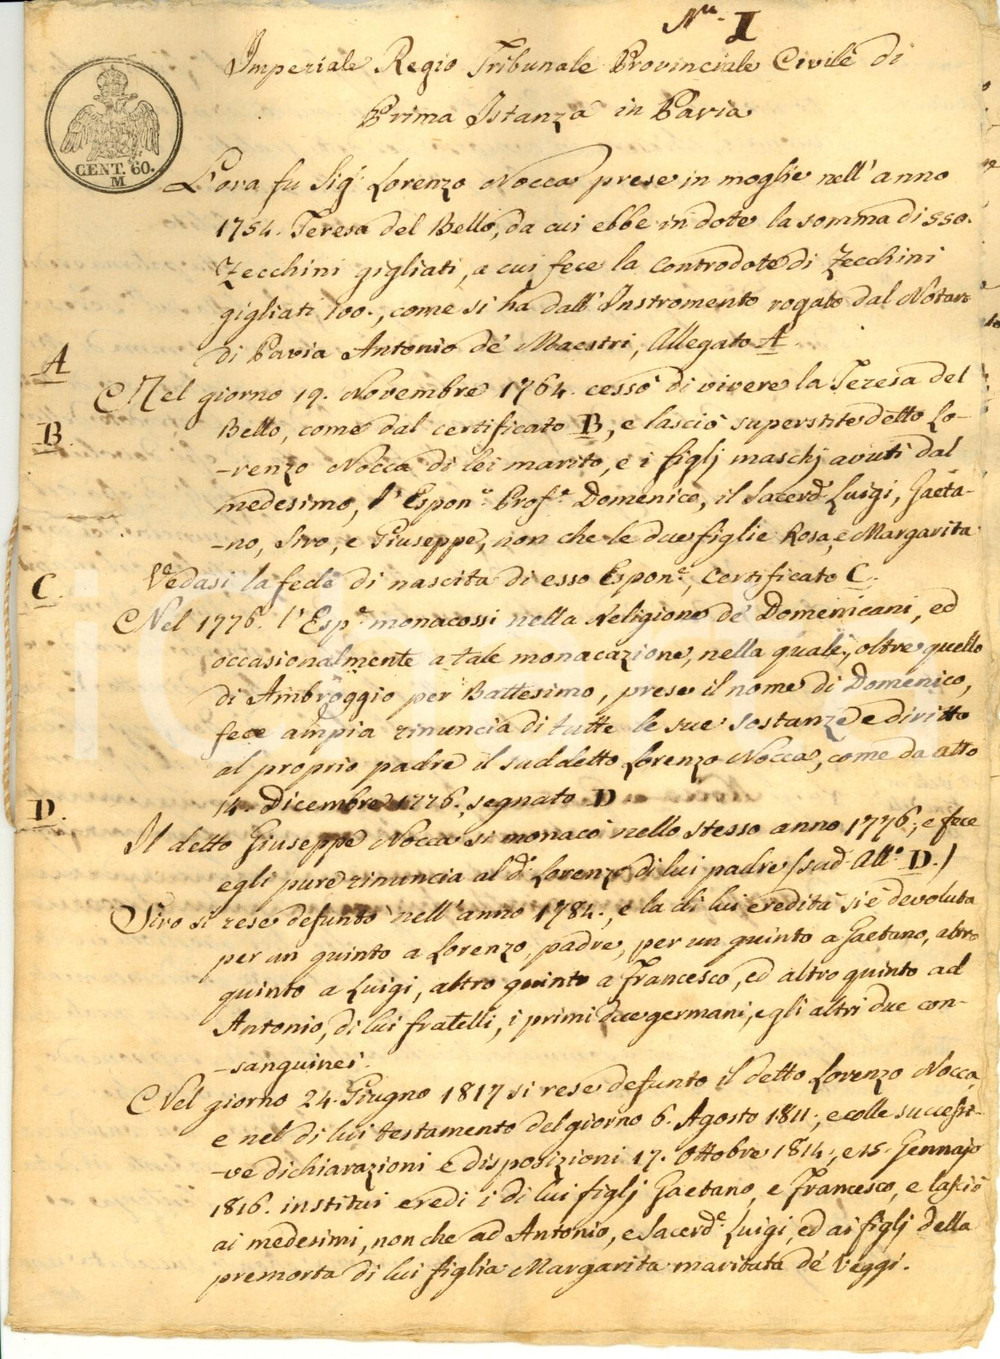 N.° I
Imperiale Regio Tribunale Provinciale Civile di
Prima Istanza in Pavia
CENT. 60.
M
L'ora fu Sig.r Lorenzo Nocca prese in moglie nell'anno
1754. Teresa del Bello, da cui ebbe in dote la somma di 550.
Zecchini gigliati, a cui fece la controdote di Zecchini
gigliati 100., come si ha dall'Instromento rogato dal Notaro
di Pavia Antonio de' Maestri, Allegato A
A
Nel giorno 19. Novembre 1764. cessò di vivere la Teresa del
B.
Bello, come dal certificato B, e lasciò superstite detto Lo-
-renzo Nocca di lei marito, e i figlj maschj avuti dal
medesimo, l'Espon.e Prof.r Domenico, il Sacerd.e Luigi, Gaeta-
-no, Siro, e Giuseppe, non che le due figlie Rosa, e Margarita
C.
Vedasi la fede di nascita di esso Espon.e, Certificato C.
Nel 1776. l'Esp.e monacossi nella Religione de' Domenicani, ed
occasionalmente a tale monacazione, nella quale, oltre quello
di Ambroggio per Battesimo, prese il nome di Domenico,
fece ampia rinuncia di tutte le sue sostanze e diritto
al proprio padre il suddetto Lorenzo Nocca, come da atto
D.
14. Dicembre 1776. segnato D
Il detto Giuseppe Nocca si monacò nello stesso anno 1776, e fece
egli pure rinuncia al d.o Lorenzo di lui padre (sud.o All.o D.)
Siro si rese defunto nell'anno 1784., e la di lui eredità si è devoluta
per un quinto a Lorenzo, padre, per un quinto a Gaetano, altro
quinto a Luigi, altro quinto a Francesco, ed altro quinto ad
Antonio, di lui fratelli, i primi due germani, e gli altri due con-
-sanguinei.
Nel giorno 24. Giugno 1817 si rese defunto il detto Lorenzo Nocca,
e nel di lui testamento del giorno 6. Agosto 1811., e colle successi-
-ve dichiarazioni e disposizioni 17. Ottobre 1814., e 15. Gennajo
1816. instituì eredi i di lui figlj Gaetano, e Francesco, e lasciò
ai medesimi, non che ad Antonio, e Sacerd.e Luigi, ed ai figlj della
premorta di lui figlia Margarita maritata de' Veggi.